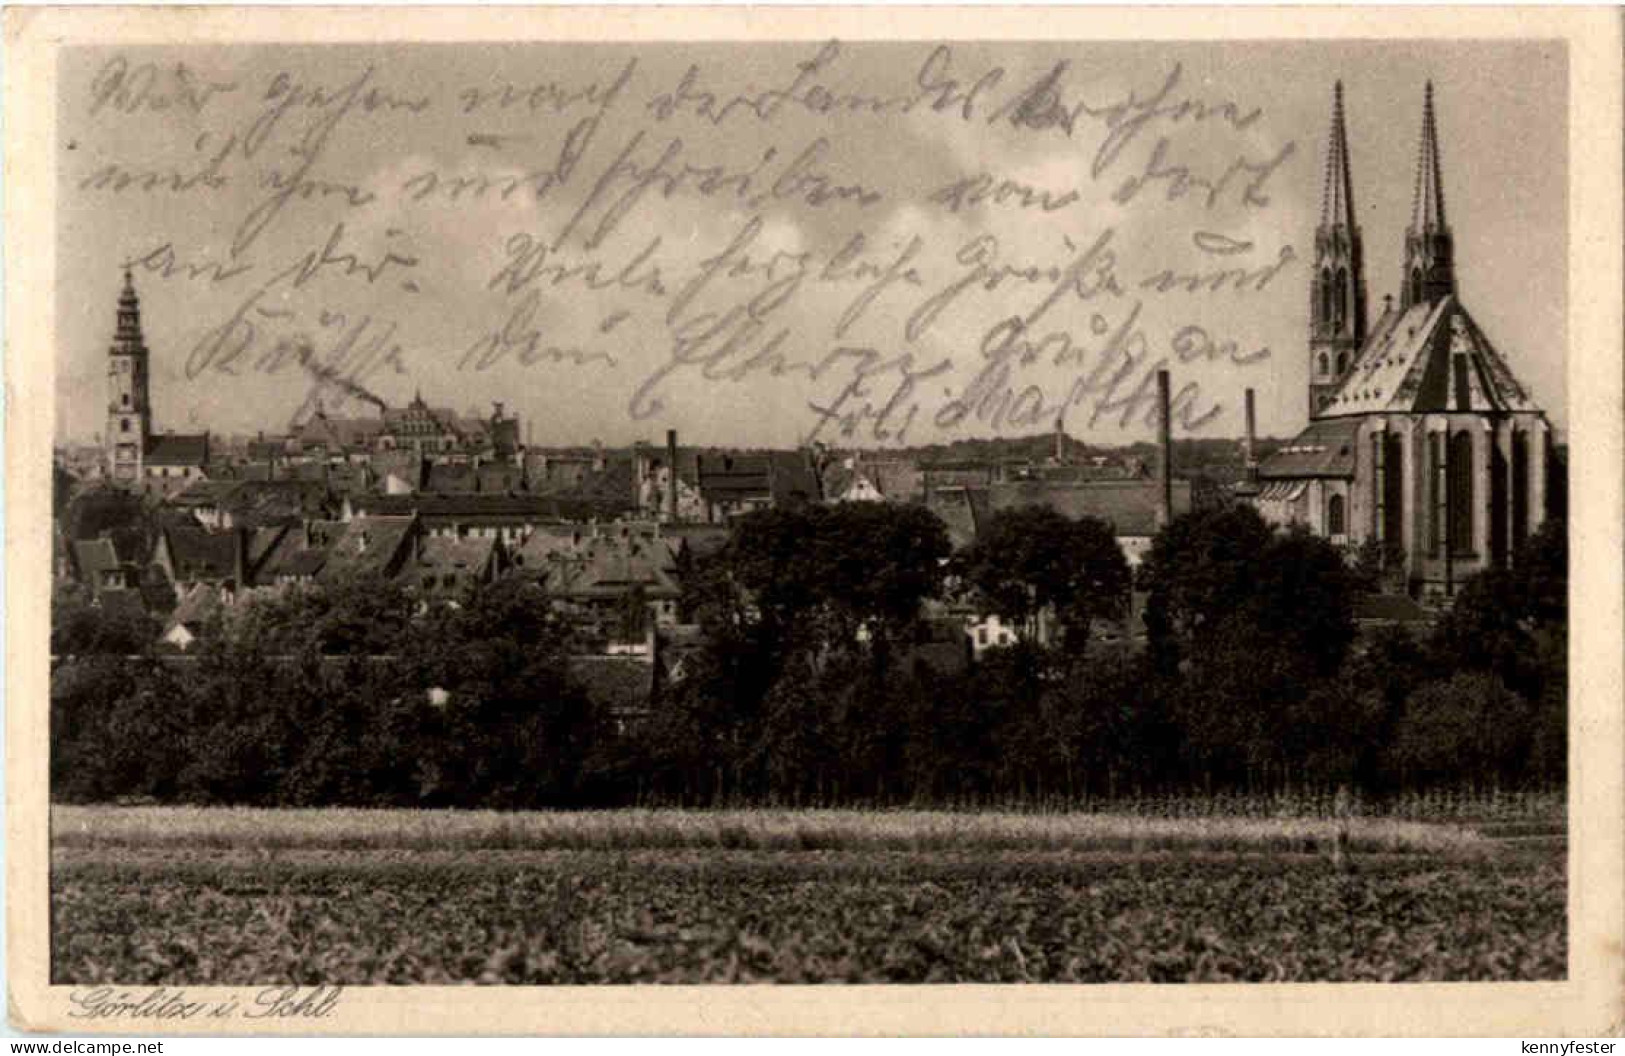 Wir gehen nach der Landeskrohne
mit ihm und schreiben von dort
an dir. Viele herzliche Grüße und
Küsse Dein Eltern Gruß an
Erli Martha
Görlitz i. Schl.
www.delcampe.net
kennyfester